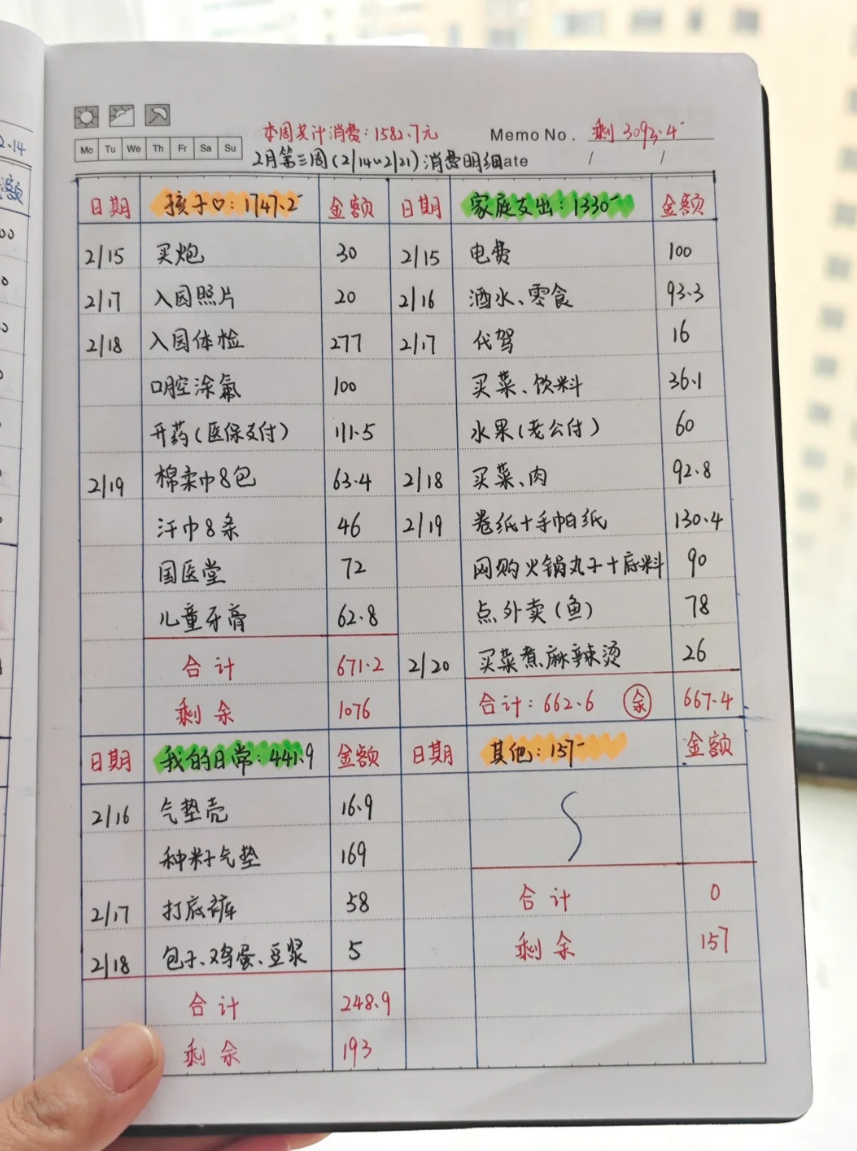 本周共计消费:1582.7元
Memo No. 剩 3093.4
Mo Tu We Th Fr Sa Su
2月第三周(2/14~2/21)消费明细ate / /
日期 孩子:1747.2 金额 日期 家庭支出:1330 金额
2/15 买炮 30 2/15 电费 100
2/17 入园照片 20 2/16 酒水、零食 93.3
2/18 入园体检 277 2/17 代驾 16
口腔涂氟 100 买菜、饮料 36.1
开药(医保支付) 111.5 水果(老公付) 60
2/19 棉柔巾8包 63.4 2/18 买菜、肉 92.8
汗巾8条 46 2/19 卷纸+手帕纸 130.4
国医堂 72 网购火锅丸子+底料 90
儿童牙膏 62.8 点外卖(鱼) 78
合计 671.2 2/20 买菜煮麻辣烫 26
剩余 1076 合计:662.6 余 667.4
日期 我的日常:441.9 金额 日期 其他:157 金额
2/16 气垫壳 16.9
种籽气垫 169
2/17 打底裤 58 合计 0
2/18 包子、鸡蛋、豆浆 5 剩余 157
合计 248.9
剩余 193
2.14